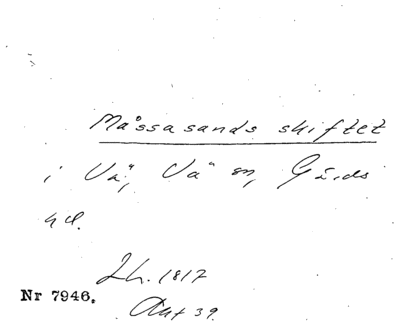 Måssasands skiftet
i Vä, Vä sn, Gärds
hd.
Lh. 1817
Nr 7946.
Akt 39.